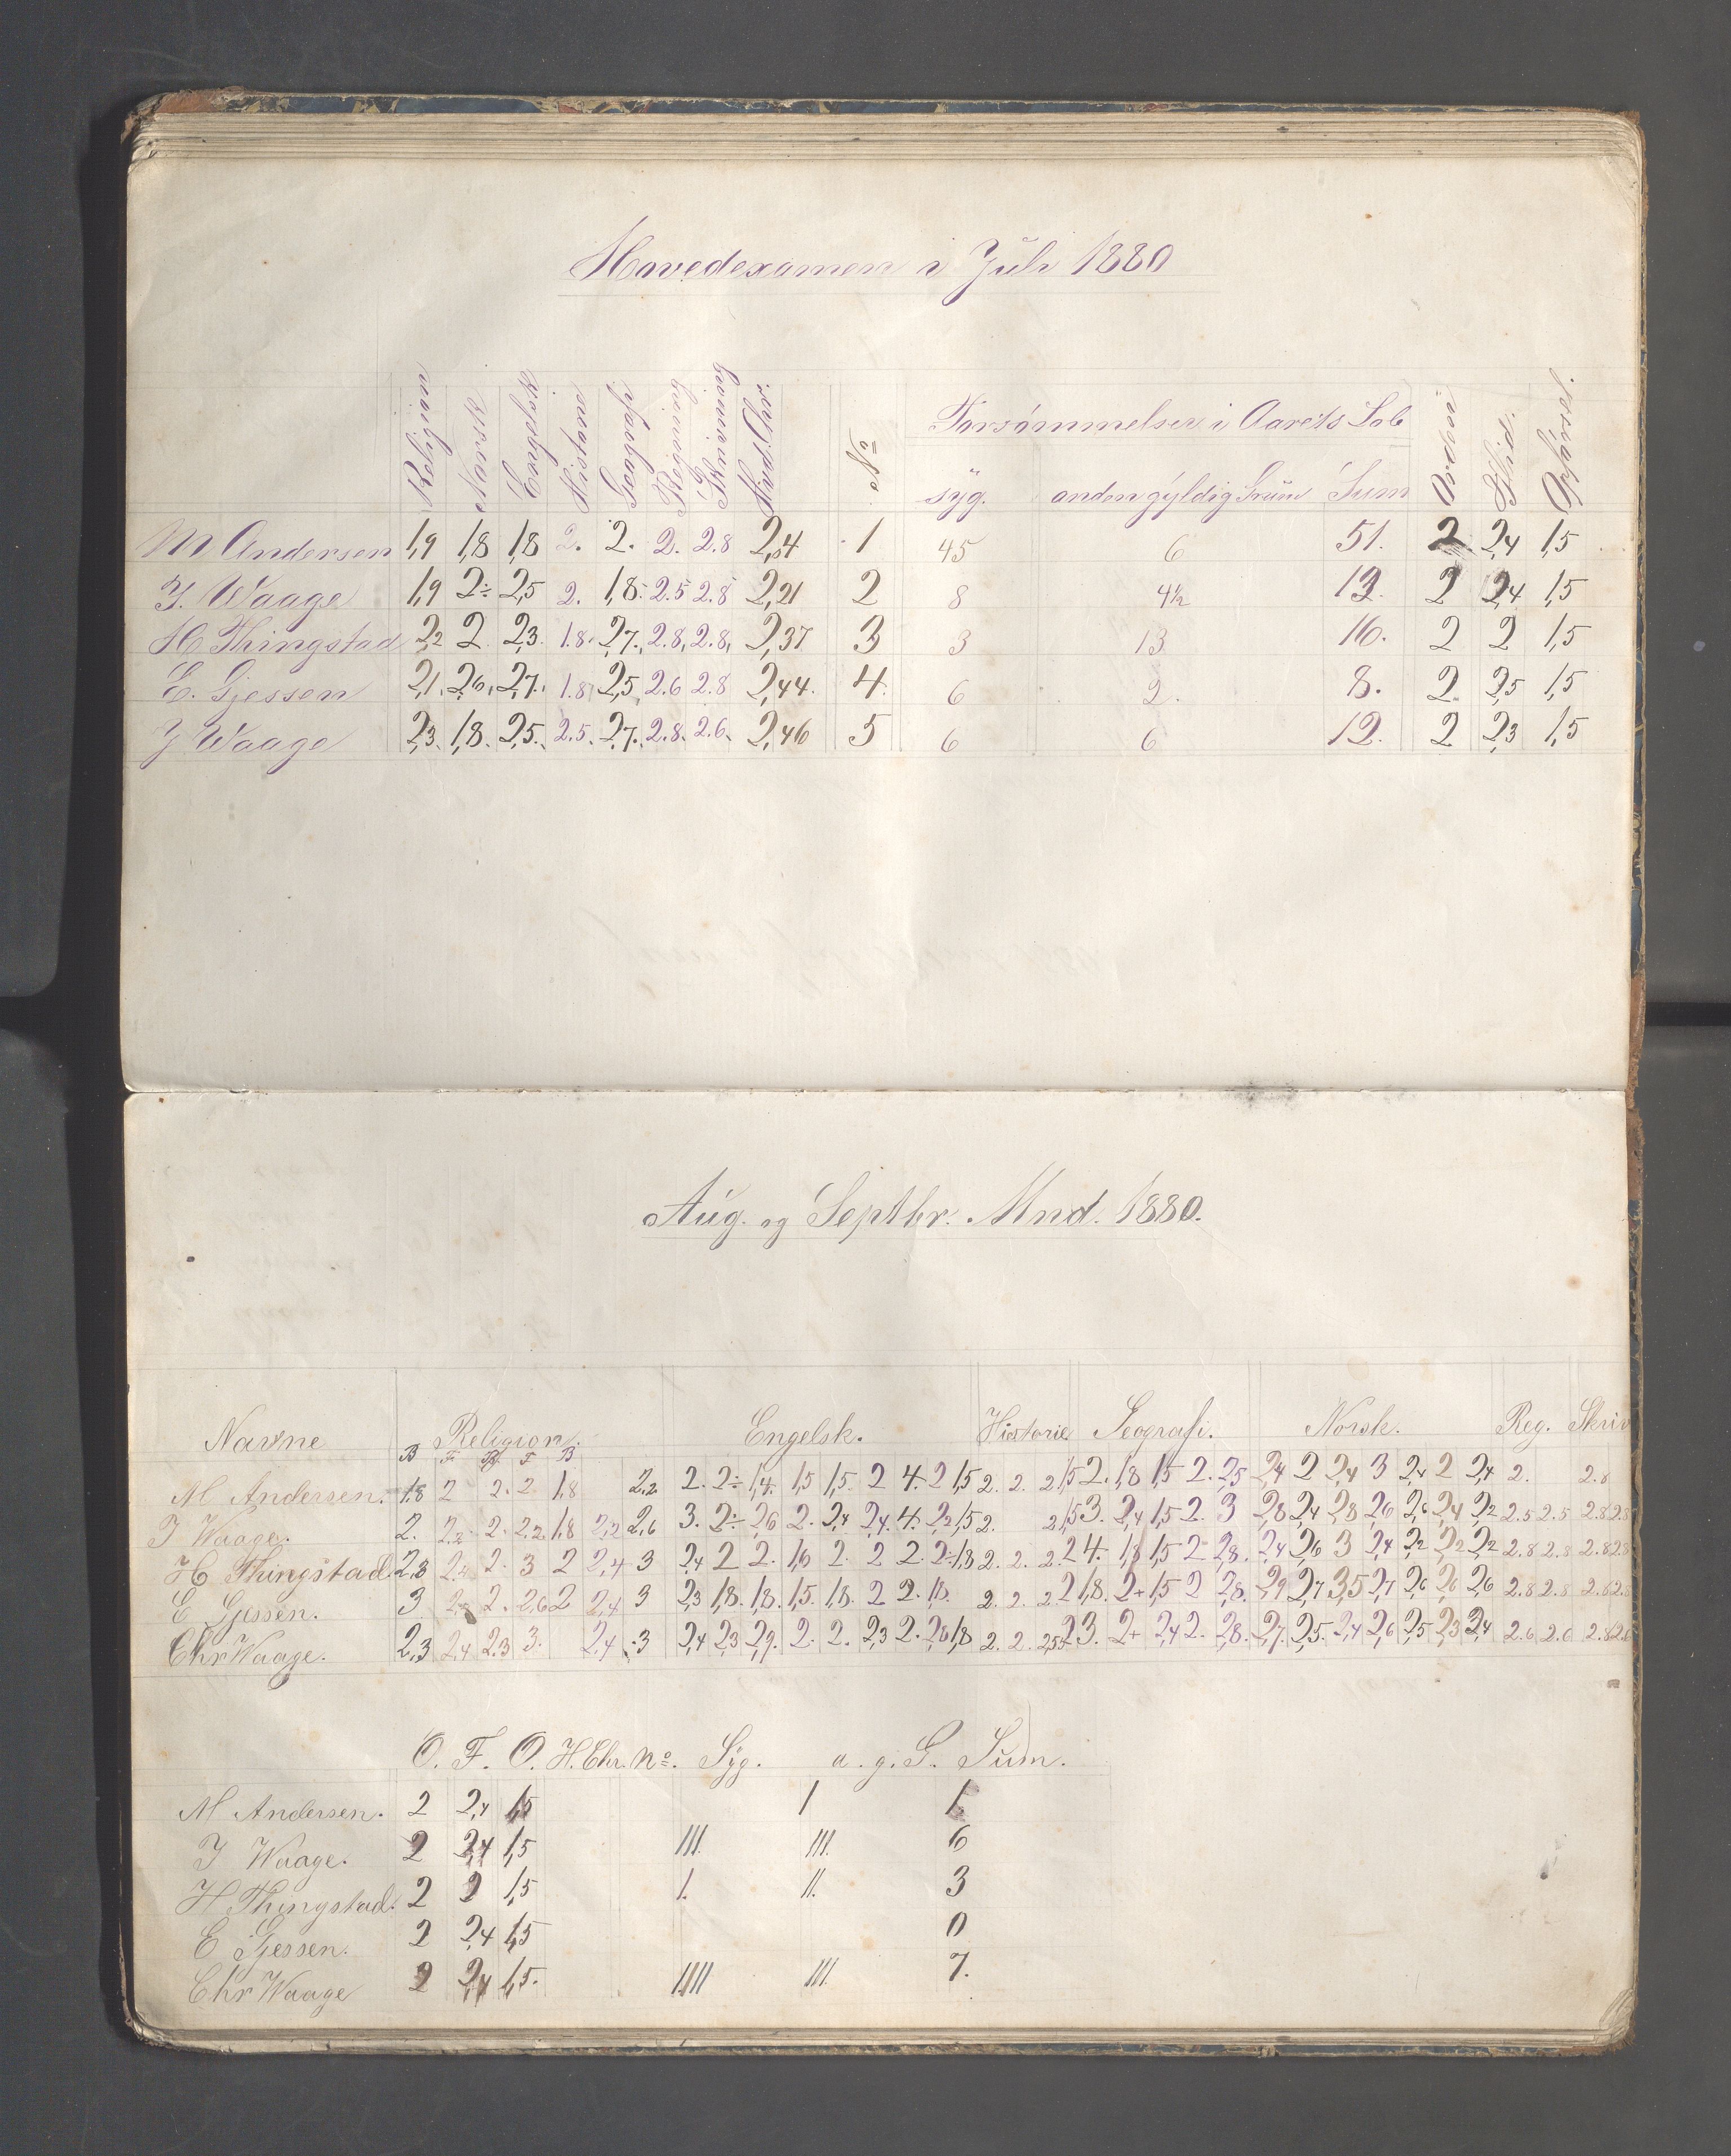 Hovedexamen i Juli 1880
Religion Norsk Engelsk Historie Geografi Regning Skrivning Hud.Chr. No Forsömmelser i Aarets Löb Orden Flid. Opförsel.
syg. anden gyldig Grund Sum
M Andersen 1,9 1,8 1,8 2. 2. 2. 2.8 2,04 1 45 6 51. 2 2,4 1,5
J. Waage 1,9 2÷ 2,5 2. 1,8. 2.5 2.8 2,21 2 8 4½ 12. 2 2,4 1,5
H Thingstad 2,2 2 2,3. 1.8. 2,7. 2.8, 2.8, 2,37 3 3 13 16. 2 2 1,5
E. Gjessen 2,1. 2,6, 2,7. 1.8 2,5 2.6 2.8 2,44. 4. 6 2. 8. 2. 2,5 1,5
J Waage 2,3. 1,8. 2,5. 2.5. 2,7. 2.8. 2.6. 2,46 5 6 6 12. 2 2,3 1,5
Aug. og Septbr. Mnd. 1880.
Navne Religion. Engelsk. Historie Geografi. Norsk. Reg. Skriv
B F Bf F B
M Andersen. 1,8 2 2. 2 1,8 2,2 2. 2÷ 1,4. 1,5 1,5. 2 4. 2 1,5 2. 2. 2 1,5 2. 1,8 1,5 2. 2,5 2,4 2 2,4 3 2,4 2 2,4 2. 2.8
J Waage. 2. 2,2 2. 2,2 1,8 2,2 2,6 3. 2÷ 2,6 2. 2,4 2,4. 4. 2,2 1,5 2. 2 1,5 3. 2,4 1,5 2. 3 2,8 2,4 2,8 2,6 2,6 2,4 2,2 2.5 2.5 2.8 2.8
H Thingstad. 2,3 2,4 2. 3 2 2,4 3 2,4 2 2. 1,6 2. 2 2. 2÷ 1,8 2. 2. 2. 2 4. 1,8 1,5 2 2,8. 2,4 2,6 3 2,4 2,2 2,2 2,2 2.8 2.8 2.8 2.8
E Gjessen. 3 2. 2,6 2 2,4 3 2,3 1,8. 1,8. 1,5. 1,8. 2 2. 1,8. 2. 2. 2. 2 1,8. 2+ 1,5 2 2,8. 2,9 2,7 3,5 2,7 2,6 2,6 2,6 2.8 2.8 2.8
Chr Waage. 2,3 2,4 2.3 3. 2.4 3 2,4 2,3 2,9. 2. 2. 2,3 2. 2,6 1,8 2. 2. 2,5 2 3. 2+ 2,4 2. 2,8. 2,7. 2,5. 2,4 2,6 2,5 2,3 2,4 2.6 2.6 2.8 2.6
O. F. O. H.Chr. No. Syg. a. g. G. Sum.
M Andersen. 2 2,4 1,5 I 1.
J Waage. 2 2,4 1,5 III. III. 6
H Thingstad. 2 2 1,5 I. II. 3
E Gjessen. 2 2,4 1,5 0
Chr Waage 2 2,4 1,5. IIII III. 7.